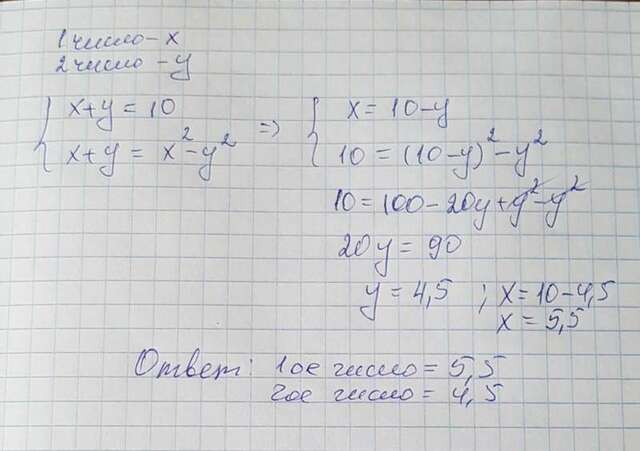 1 число - x
2 число - y
x+y = 10 => x = 10-y
x+y = x²-y² 10 = (10-y)²-y²
10 = 100-20y+y²-y²
20y = 90
y = 4,5 ; x=10-4,5
x = 5,5
Ответ: 1ое число = 5,5
2ое число = 4,5